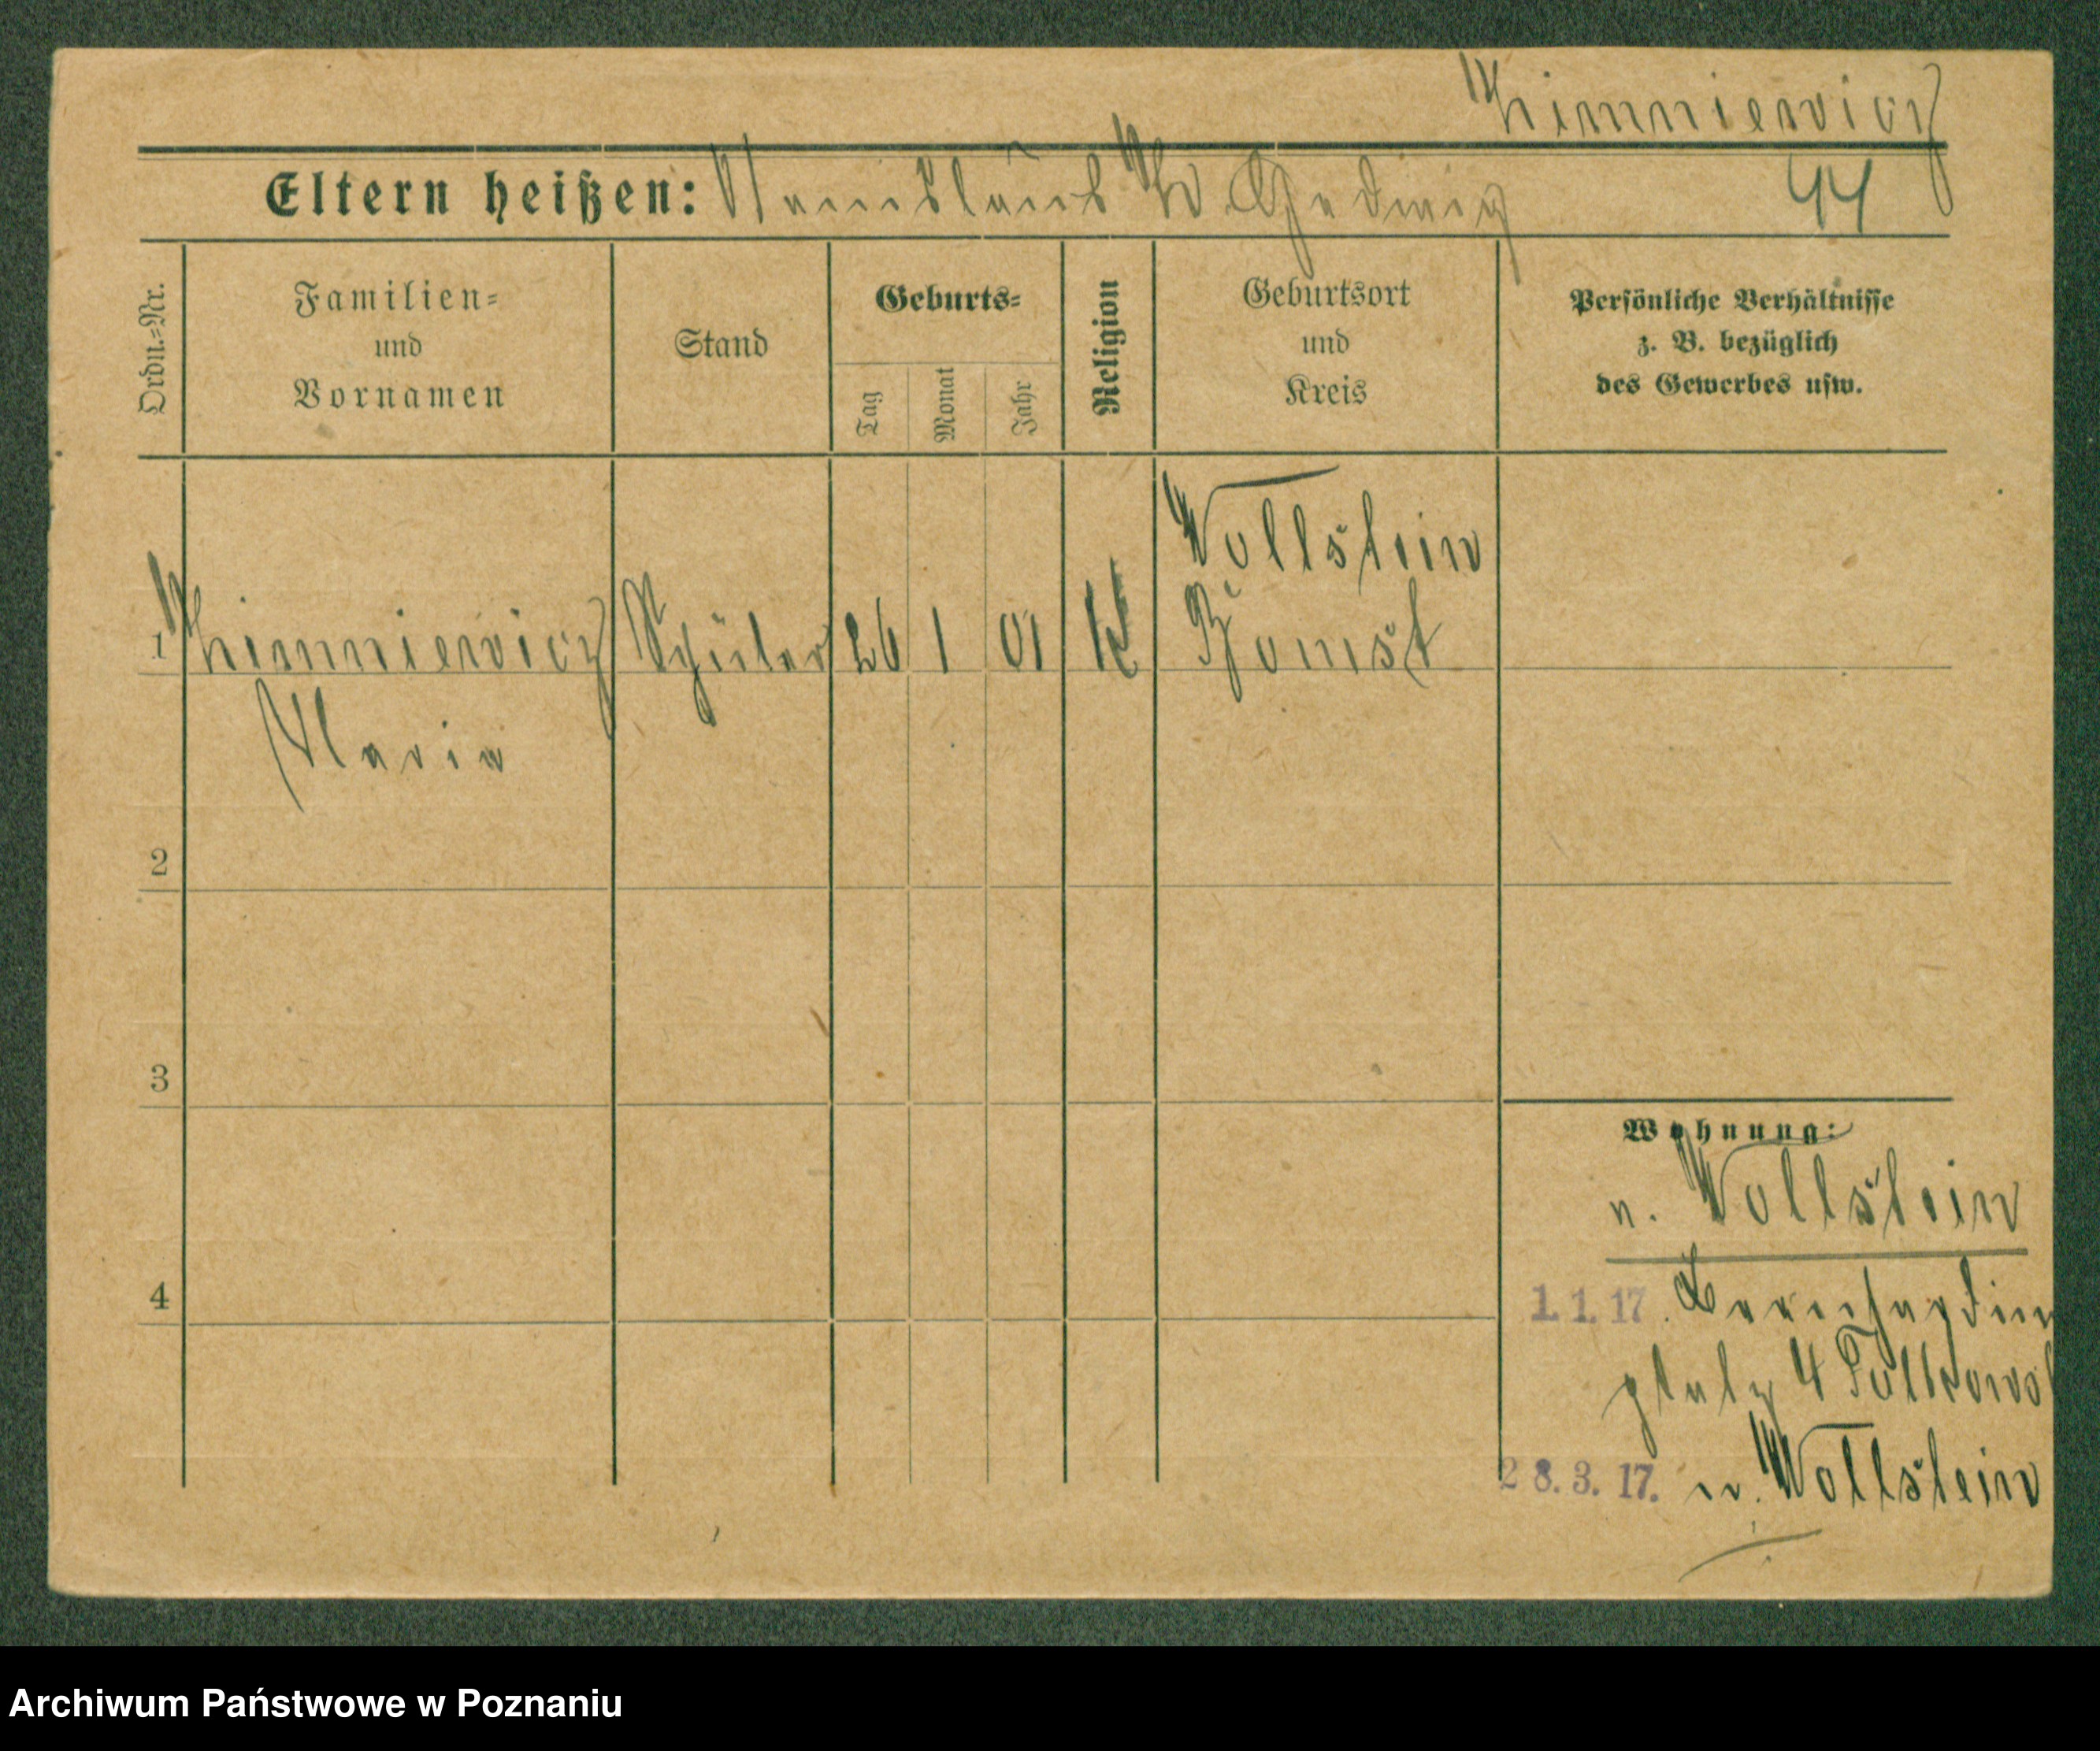 Thimniewicz
Eltern heißen: Stanislaus Th. Hedwig 44
Ordn.-Nr.
Familien-
und
Vornamen
Stand
Geburts-
Tag
Monat
Jahr
Religion
Geburtsort
und
Kreis
Persönliche Verhältnisse
z. B. bezüglich
des Gewerbes usw.
Wollstein
1 Thimniewicz Schüler 26 1 01 K Bomst
Maria
2
3
4
Wohnung:
n. Wollstein
1. 1. 17. Bernhardin
platz 4
28. 3. 17. n. Wollstein
Archiwum Państwowe w Poznaniu